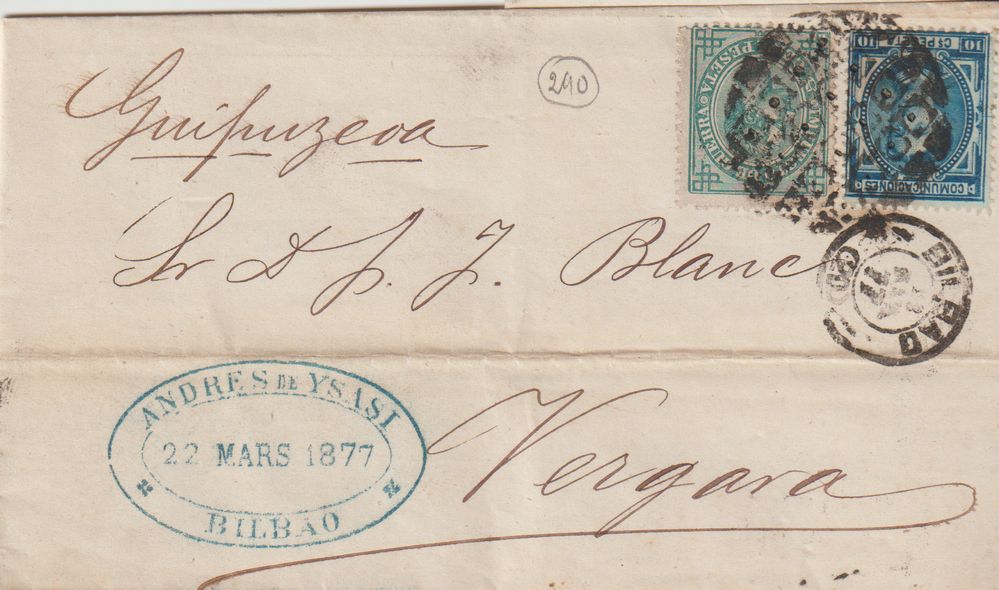 Guipuzcoa
290
10 Cs PESETA 10
COMUNICACIONES
PESETA
Sr D J. J. Blanc
BILBAO
77
ANDRES DE YSASI
22 MARS 1877
BILBAO
Vergara